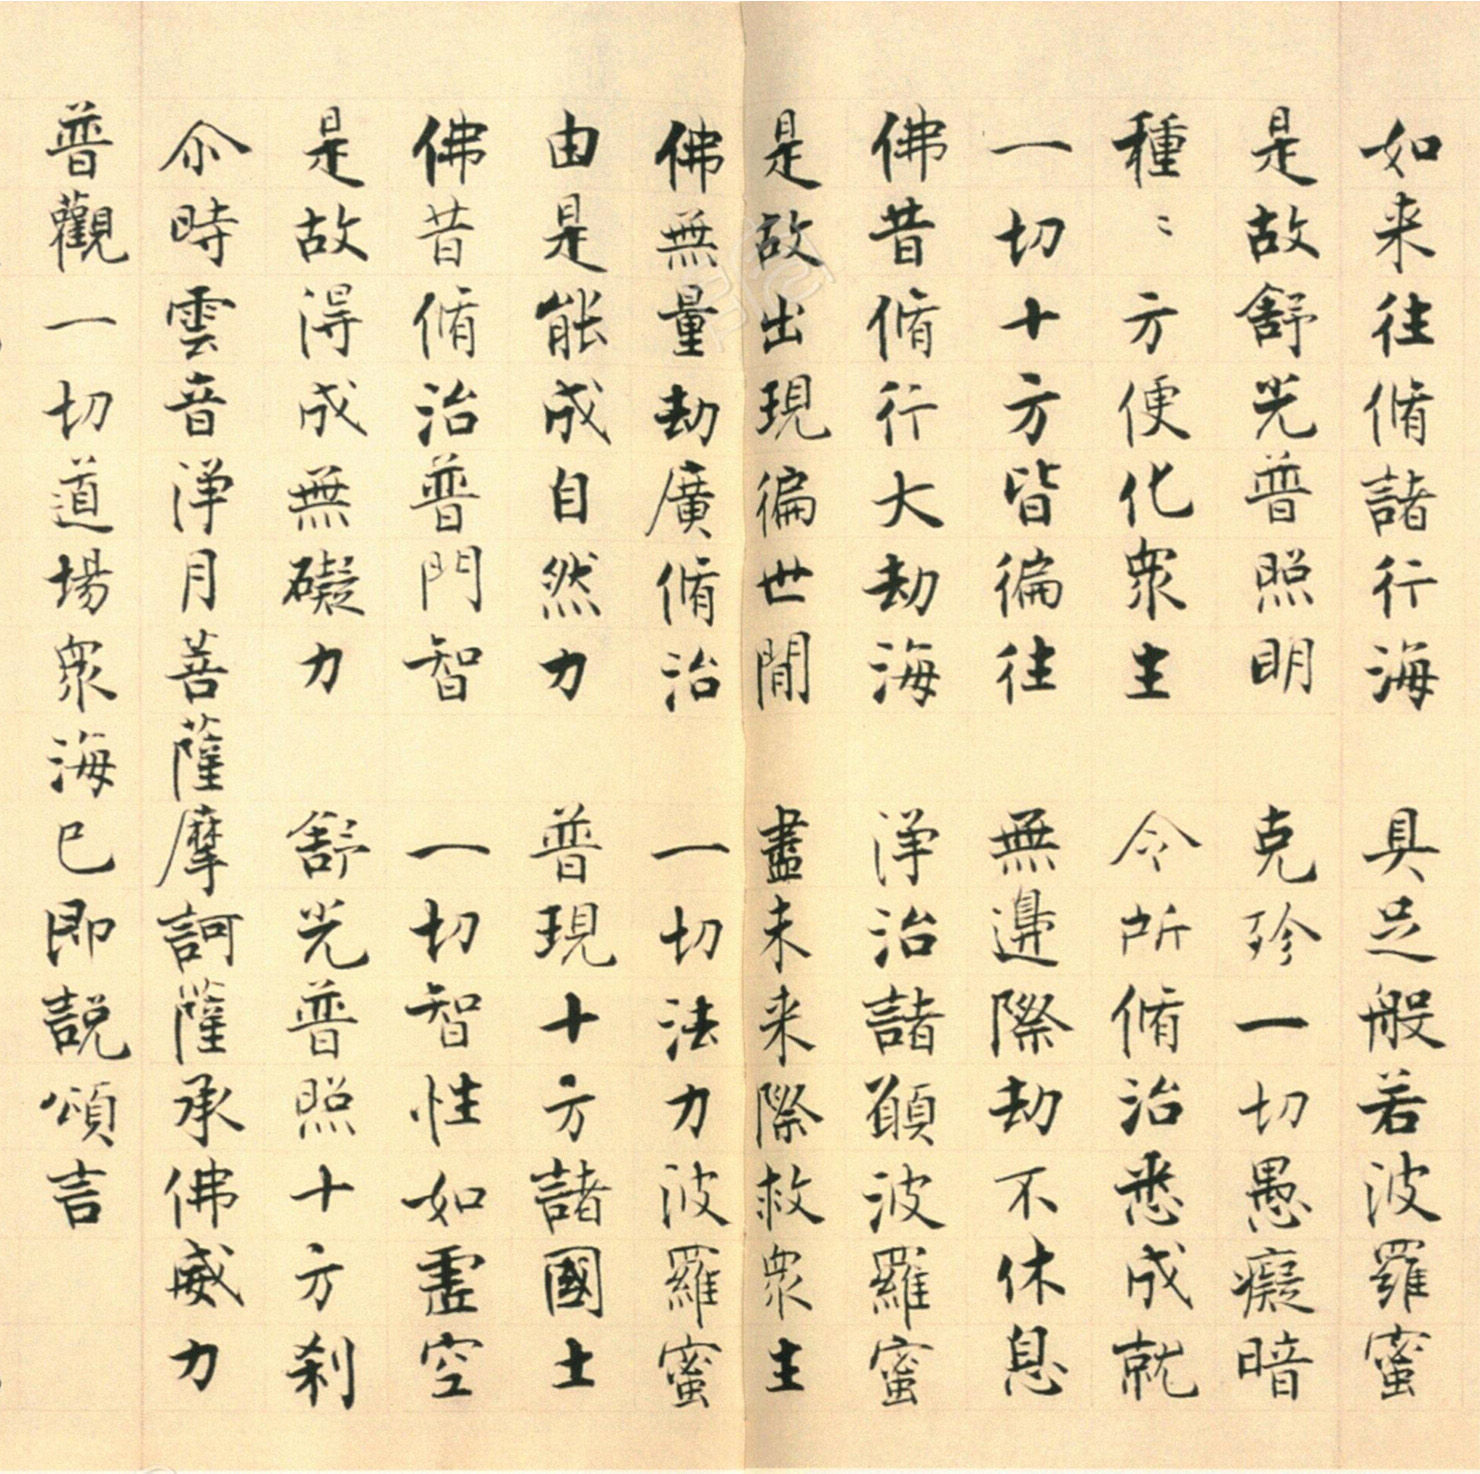 如来往脩諸行海　具足般若波羅蜜
是故舒光普照明　克殄一切愚癡暗
種〻方便化衆生　令所脩治悉成就
一切十方皆徧往　無邊際劫不休息
佛昔脩行大劫海　淨治諸願波羅蜜
是故出現徧世間　盡未来際救衆生
佛無量劫廣脩治　一切法力波羅蜜
由是能成自然力　普現十方諸國土
佛昔脩治普門智　一切智性如虛空
是故淂成無礙力　舒光普照十方刹
尒時雲音淨月菩薩摩訶薩承佛威力
普觀一切道場衆海已即説頌言